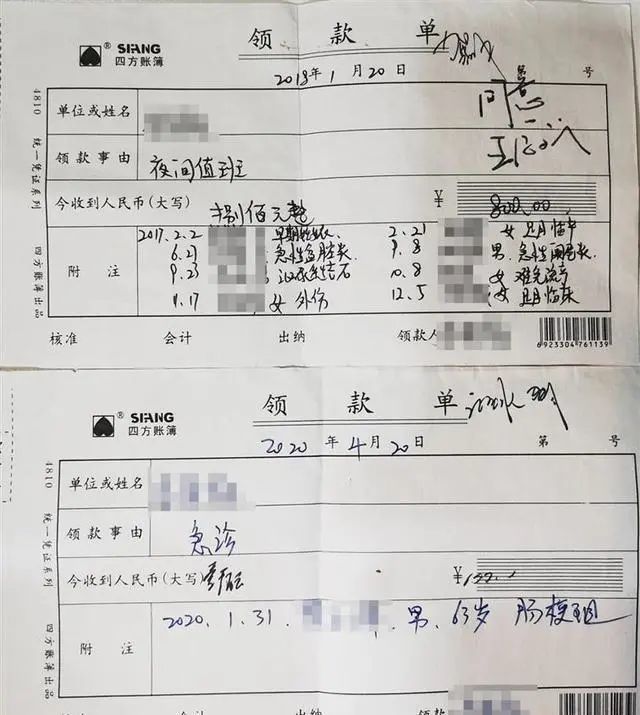 SIFANG
四方账簿
领 款 单
2018年1月20日
第 号
4810 统一凭证系列 四方账簿出品
单位或姓名
同意
领款事由
夜间值班
今收到人民币(大写)
捌佰元整
¥
800.00
附 注
2017.2.2
2.21
女 足月临产
6.27
9.8
男.
9.23
10.8
女 难免流产
11.17
女 外伤
12.5
女 足月临床
核准
会计
出纳
领款人
6923304761139
SIFANG
四方账簿
领 款 单
2020年4月20日
第 号
4810 统一凭证系列 四方账簿出品
单位或姓名
领款事由
急诊
今收到人民币(大写)
¥
附 注
2020.1.31.
男、63岁 肠梗阻
核准
会计
出纳
领款人